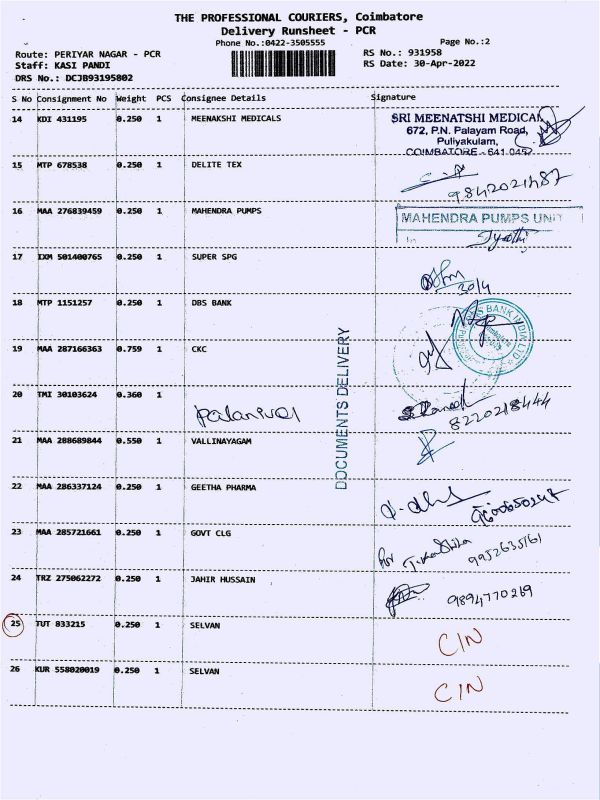 THE PROFESSIONAL COURIERS, Coimbatore
Delivery Runsheet - PCR
Phone No.:0422-3505555
Page No.:2
Route: PERIYAR NAGAR - PCR
RS No.: 931958
Staff: KASI PANDI
RS Date: 30-Apr-2022
DRS No.: DCJB93195802
S No Consignment No Weight PCS Consignee Details Signature
14 KDI 431195 0.250 1 MEENAKSHI MEDICALS
SRI MEENATSHI MEDICAL
672, P.N. Palayam Road,
Puliyakulam,
COIMBATORE - 641 045
15 MTP 678538 0.250 1 DELITE TEX
9842021487
16 MAA 276839459 0.250 1 MAHENDRA PUMPS
MAHENDRA PUMPS UNIT
Jyothi
17 IXM 501400765 0.250 1 SUPER SPG
30/4
18 MTP 1151257 0.250 1 DBS BANK
BANK INDIA LTD
19 MAA 287166363 0.759 1 CKC
DOCUMENTS DELIVERY
20 TMI 30103624 0.360 1
Palanivel
8220218444
21 MAA 288689844 0.550 1 VALLINAYAGAM
22 MAA 286337124 0.250 1 GEETHA PHARMA
23 MAA 285721661 0.250 1 GOVT CLG
9952635161
24 TRZ 275062272 0.250 1 JAHIR HUSSAIN
9894770269
25 TUT 833215 0.250 1 SELVAN
CIN
26 KUR 558020019 0.250 1 SELVAN
CIN